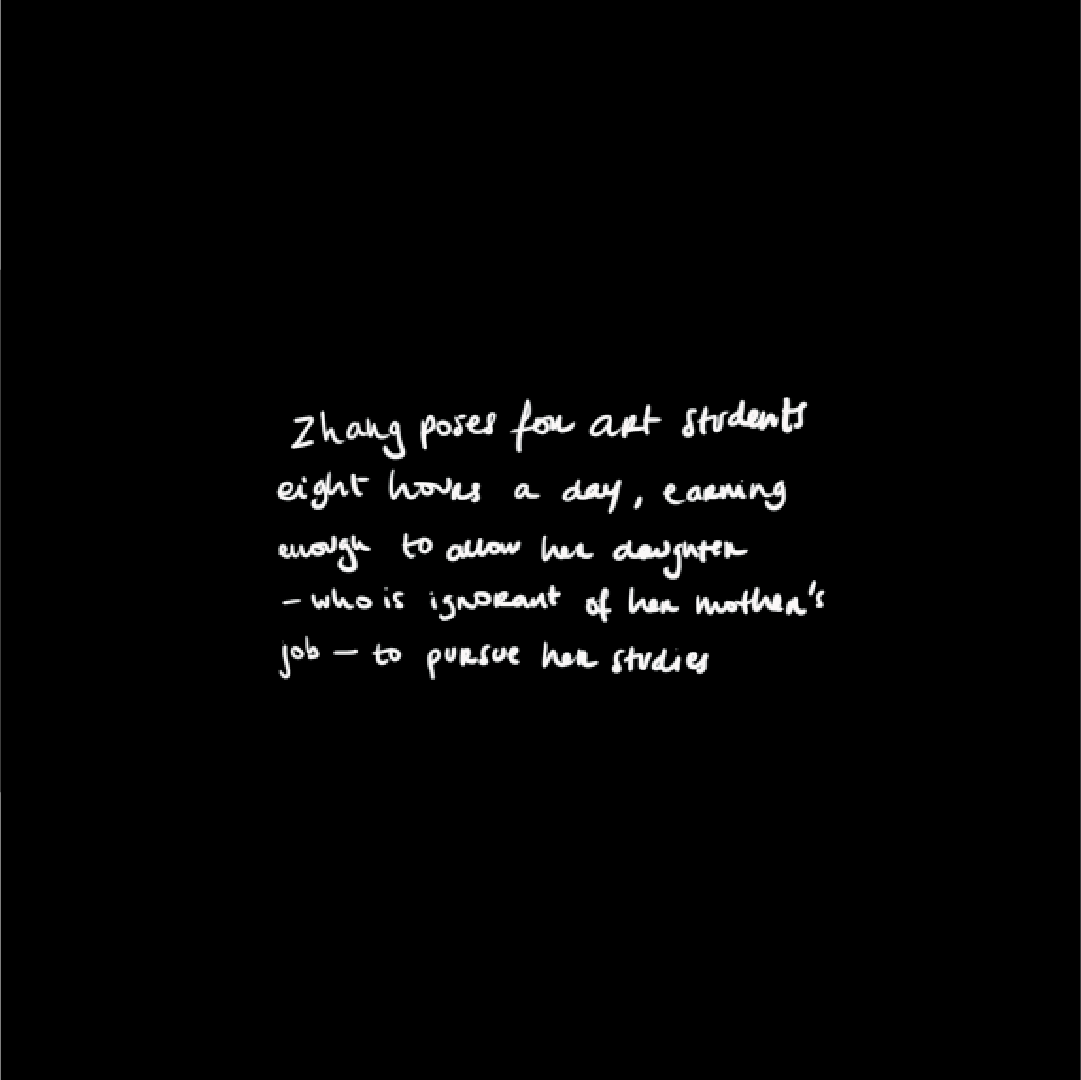 Zhang poses for art students
eight hours a day, earning
enough to allow her daughter
– who is ignorant of her mother's
job – to pursue her studies